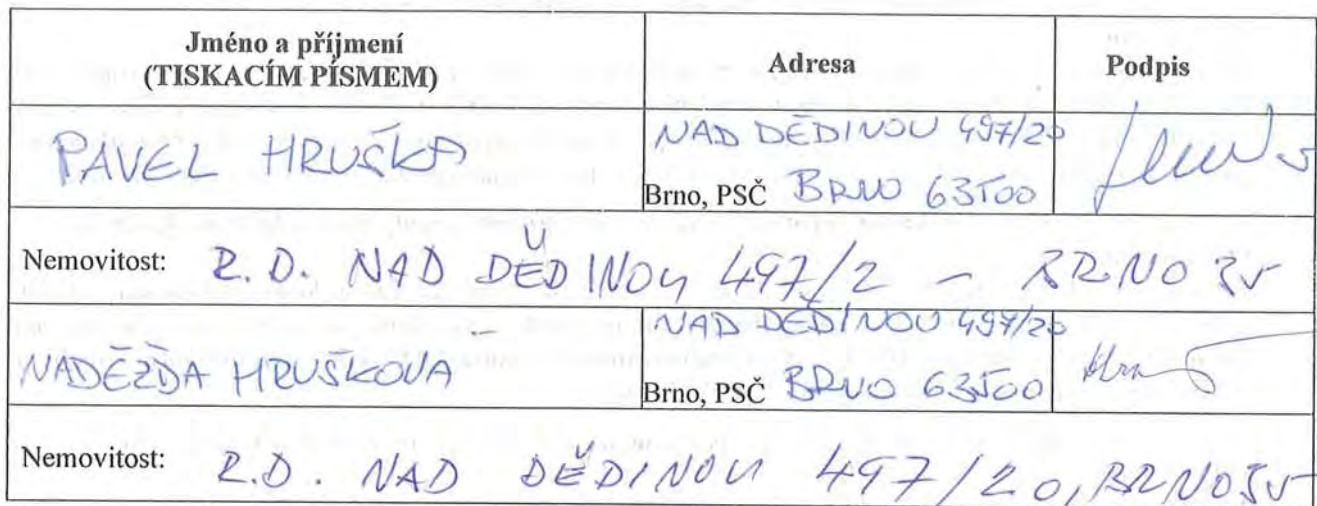 Jméno a příjmení
(TISKACÍM PÍSMEM)
Adresa
Podpis
PAVEL HRUŠKA
NAD DĚDINOU 497/20
Brno, PSČ BRNO 63500
Nemovitost: R.D. NAD DĚDINOU 497/2 - BRNO 35
NADĚŽDA HRUŠKOVA
NAD DĚDINOU 497/20
Brno, PSČ BRNO 63500
Nemovitost: R.D. NAD DĚDINOU 497/20, BRNO 35